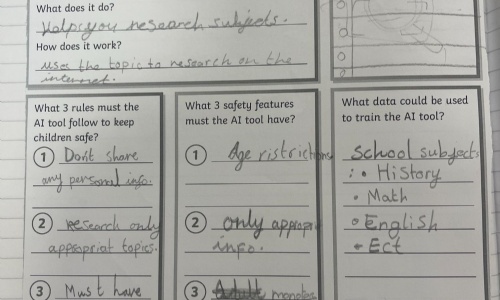 What does it do?
Helps you research subjects.
How does it work?
Use the topic to research on the
internet.
What 3 rules must the
AI tool follow to keep
children safe?
1 Don't share
any personal info.
2 research only
appropriat topics.
3 Must have
What 3 safety features
must the AI tool have?
1 Age ristrictions
2 only appropri
info.
3
What data could be used
to train the AI tool?
School subjects
: • History
• Math
• English
• Ect